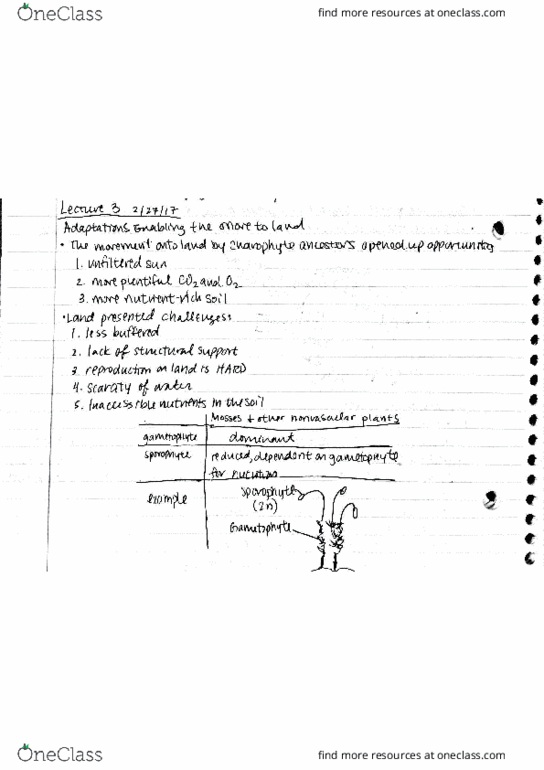 OneClass
find more resources at oneclass.com
Lecture 3 2/27/17
Adaptations Enabling the move to land
• The movement onto land by charophyte ancestors opened up opportunities
1. unfiltered sun
2. more plentiful CO2 and O2
3. more nutrient-rich soil
• Land presented challenges:
1. less buffered
2. lack of structural support
3. reproduction on land is HARD
4. scarcity of water
5. Inaccessible nutrients in the soil
Mosses + other nonvascular plants
gametophyte dominant
sporophyte reduced, dependent on gametophyte
for nutrition
example sporophyte
(2n)
Gametophyte
OneClass
find more resources at oneclass.com